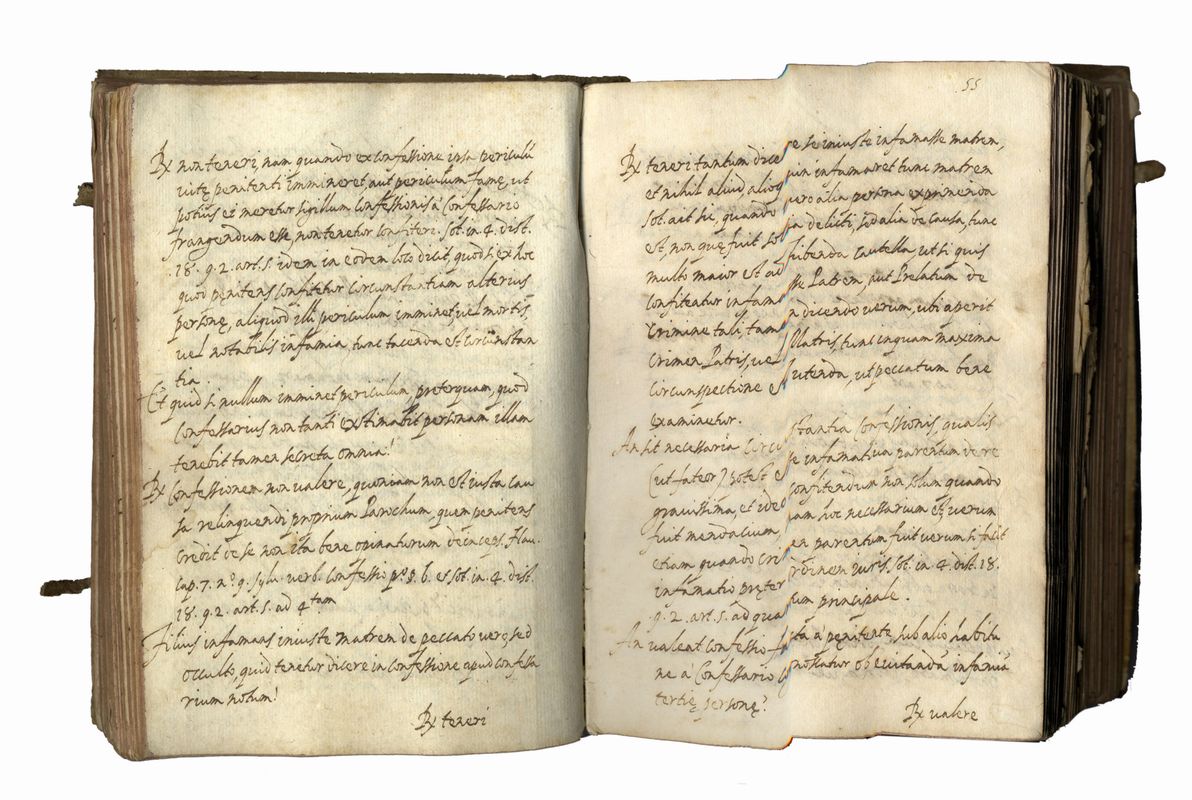 ℞ non teneri, nam quando ex confessione ipsa periculũ
vitę penitenti immineret aut periculum famę, ut
potius ei meretur sigillum confessionis à Confessario
frangendum esse, non tenetur confiteri. sot. in. 4. dist.
18. q. 2. art. 5. idem in eodem loco dicit, quod si ex hoc
quod penitens confitetur circunstantiam alterius
personę, aliquod illi periculum imminet, vel mortis
vel notabilis infamia, tunc tacenda est circũnstan
tia.
Et quid si nullum imminet periculum, preterquam, quod
Confessarius non tanti existimabit personam illam
tenebit tamen secreta omnia?
℞ Confessionem non valere, quoniam non est iusta cau
sa relinquendi proprium Parochum, quem penitens
credit de se non ita bene opinaturum deinceps. Nau.
cap. 7. n.º 9. sylu. verb. confessio pº. §. 6. et sot. in. 4. dist.
18. q. 2. art. 5. ad 4tam
Filius infamans iniuste matrem de peccato vero, sed
occulto, quid tenetur dicere in confessione apud confessa
rium notum?
℞ teneri
55
℞ teneri tantum dice e se iniuste infamasse matrem,
et nihil aliud, alioq uin infamaret tunc matrem
sot. ait hic, quando vero alia persona exprimenda
est, non quę fuit so ia delicti, sed alia de causa, tunc
multo maior est ad hibenda cautella ut si quis
confiteatur infama sse Patrem, aut Prelatum de
crimine tali, tam n dicendo verum, ubi aperit
crimen Patris, vel Matris, tunc inquam maxima
circunspectione e utenda, ut peccatum bene
examinetur.
An sit necessaria circu stantia confessionis, qualis
(ut fateor) potest e se infamatiua parentum de re
grauissima, et ideo confitendum non solum quando
fuit mendacium, am hoc necessarium est, verum
etiam quando cri en parentum fuit verum si facit
infamatio pręter ordinem iuris. sot. in. 4. dist. 18.
q. 2. art. 5. ad qua tum principale.
An valeat confessio fa cta à penitente sub alio habitu
ne à Confessario co noscatur ob euitandã infamiã
tertię personę?
℞ valere